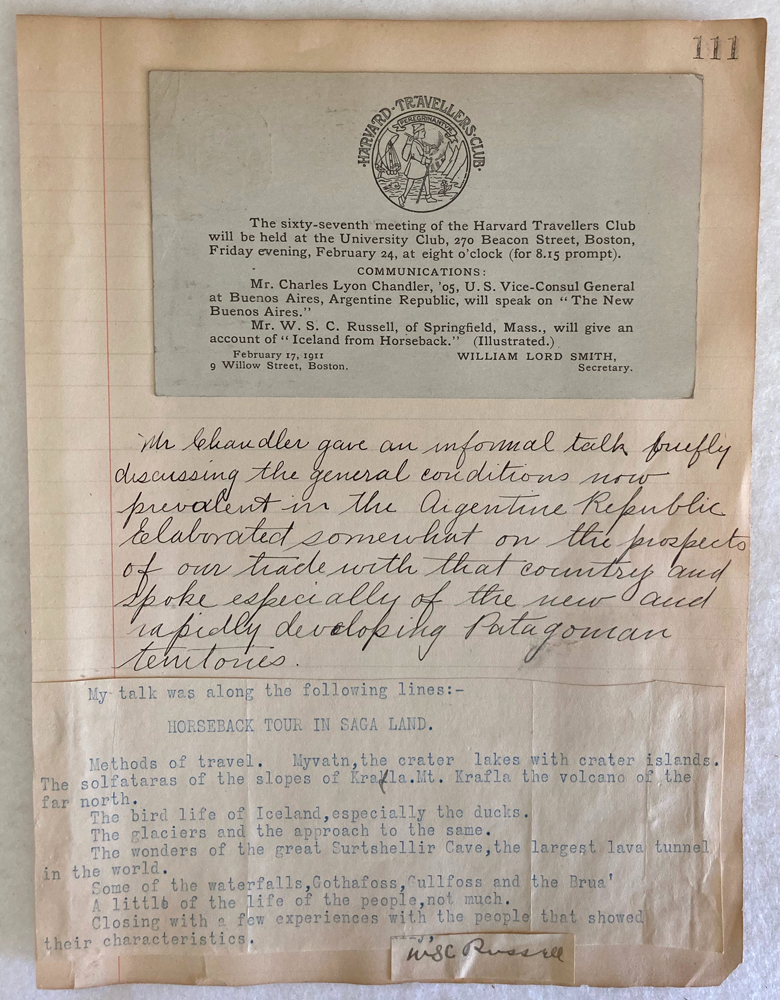 111
HARVARD·TRAVELLERS·CLUB·
The sixty-seventh meeting of the Harvard Travellers Club
will be held at the University Club, 270 Beacon Street, Boston,
Friday evening, February 24, at eight o'clock (for 8.15 prompt).
COMMUNICATIONS:
Mr. Charles Lyon Chandler, '05, U. S. Vice-Consul General
at Buenos Aires, Argentine Republic, will speak on "The New
Buenos Aires."
Mr. W. S. C. Russell, of Springfield, Mass., will give an
account of "Iceland from Horseback." (Illustrated.)
February 17, 1911 WILLIAM LORD SMITH,
9 Willow Street, Boston. Secretary.
Mr Chandler gave an informal talk briefly
discussing the general conditions now
prevalent in the Argentine Republic
Elaborated somewhat on the prospects
of our trade with that country and
spoke especially of the new and
rapidly developing Patagonian
territories.
My talk was along the following lines:-
HORSEBACK TOUR IN SAGA LAND.
Methods of travel. Myvatn,the crater lakes with crater islands.
The solfataras of the slopes of Krafla.Mt. Krafla the volcano of the
far north.
The bird life of Iceland,especially the ducks.
The glaciers and the approach to the same.
The wonders of the great Surtshellir Cave,the largest lava tunnel
in the world.
Some of the waterfalls,Gothafoss,Gullfoss and the Brua'
A little of the life of the people,not much.
Closing with a few experiences with the people that showed
their characteristics.
WSC Russell